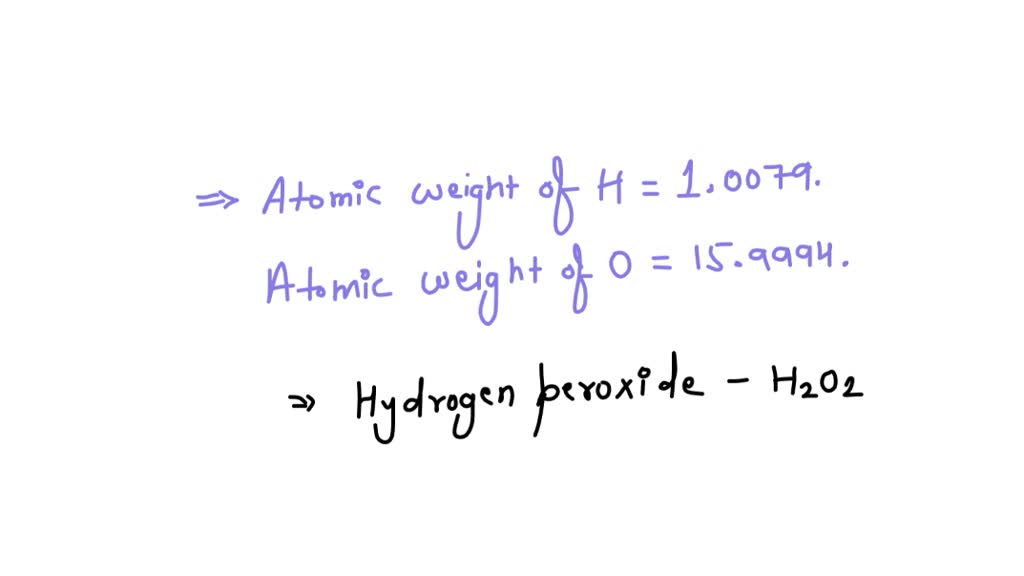 ⇒ Atomic weight of H = 1.0079.
Atomic weight of O = 15.9994.
⇒ Hydrogen peroxide - H₂O₂